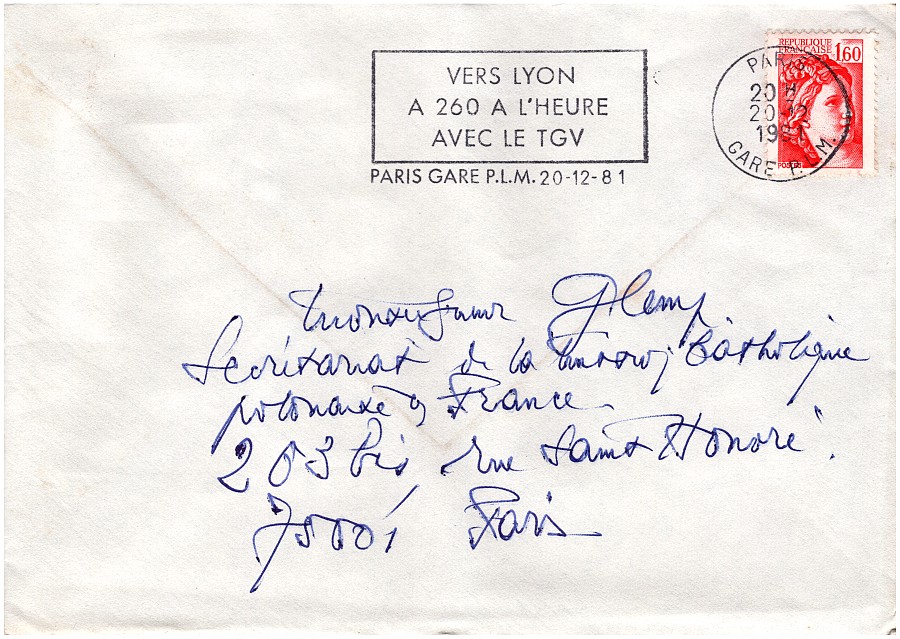 VERS LYON
A 260 A L'HEURE
AVEC LE TGV
PARIS GARE P.L.M. 20-12-81
REPUBLIQUE
FRANCAISE 1,60
POSTES
PARIS
20 H
20-12
1981
GARE P.L.M.
Monseigneur Glemp
Secrétariat de la Mission Catholique
polonaise en France
263 bis, rue Saint Honoré.
75001 Paris